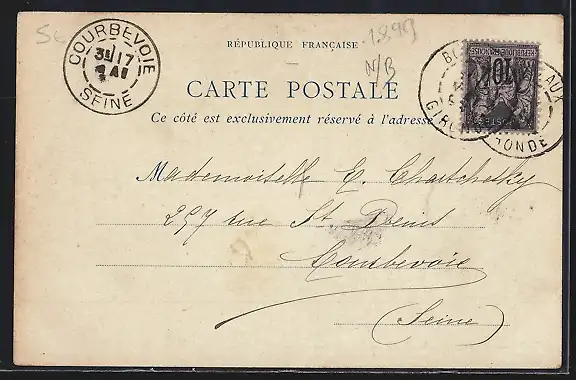 COURBEVOIE
SEINE
5e
1899
N/B
RÉPUBLIQUE FRANÇAISE
CARTE POSTALE
Ce côté est exclusivement réservé à l'adresse
10
GIRONDE
Mademoiselle E. Chartchesky
257 rue St Denis
Courbevoie
(Seine)